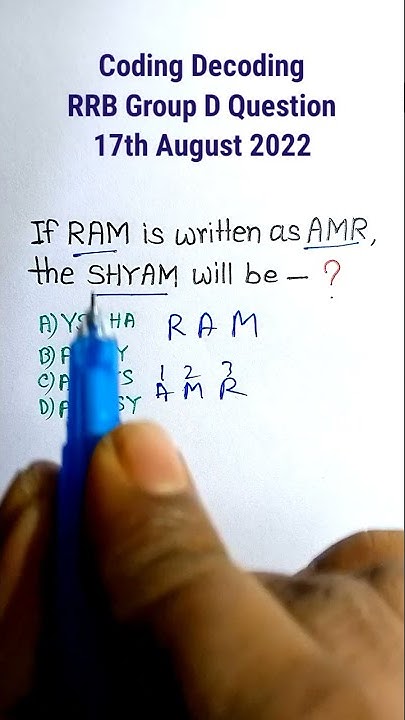 Coding Decoding
RRB Group D Question
17th August 2022
If RAM is written as AMR,
the SHYAM will be – ?
A)
B)
C)
D)
R A M
1 2 3
A M R